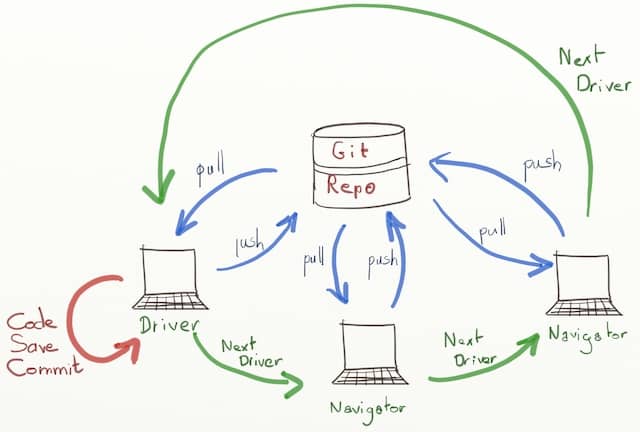 Next
Driver
Git
Repo
pull
push
push
pull
push
pull
Code
Save
Commit
Driver
Next
Driver
Navigator
Next
Driver
Navigator